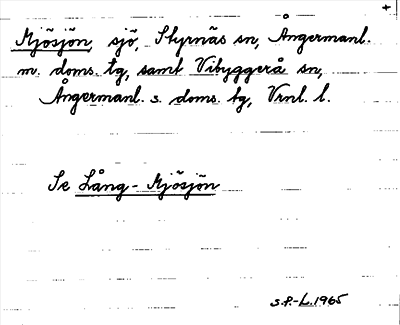 +
Mjösjön, sjö, Styrnäs sn, Ångermanl.
m. doms. tg, samt Vibyggerå sn,
Ångermanl. s. doms. tg, Vrnl. l.
Se Lång-Mjösjön
S.P.-L. 1965